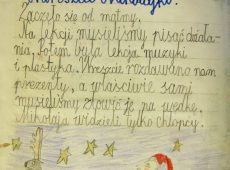 Zaczęło się od matmy.
Na lekcji musieliśmy pisać działa-
nia. Potem była lekcja muzyki
i plastyka. Wreszcie rozdawano nam
prezenty, a właściwie sami
musieliśmy złowić je na wędkę.
Mikołaja widzieli tylko chłopcy.